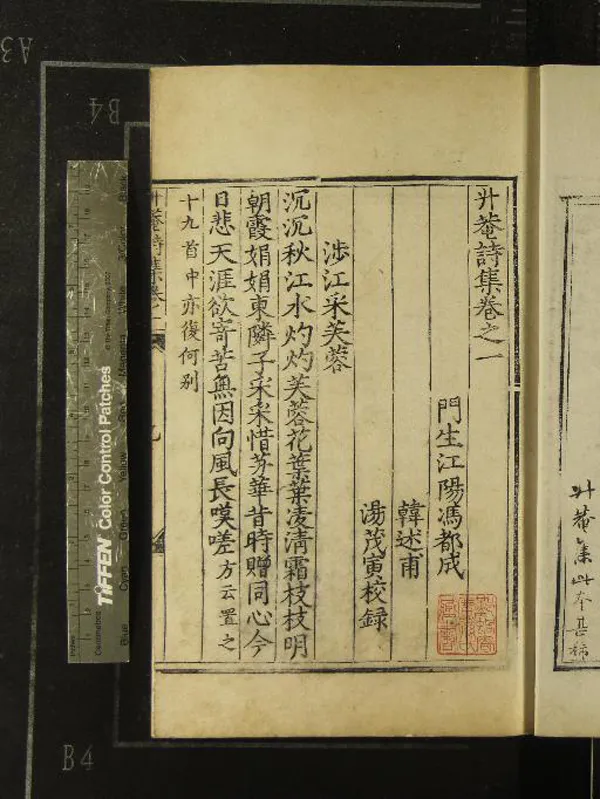 升菴詩集卷之一
門生江陽馮都成
韓述甫
湯茂寅校錄
涉江采芙蓉
沉沉秋江水灼灼芙蓉花葉葉凌清霜枝枝明
朝霞娟娟東隣子采采惜芳華昔時贈同心今
日悲天涯欲寄苦無因向風長嘆嗟方云置之
十九首中亦復何別
升菴詩集卷一
九
升菴集此本甚稀
A3
B4
B4
TIFFEN Color Control Patches
Blue
Cyan
Green
Yellow
Red
Magenta
White
3/Color
Black
Inches
Centimetres